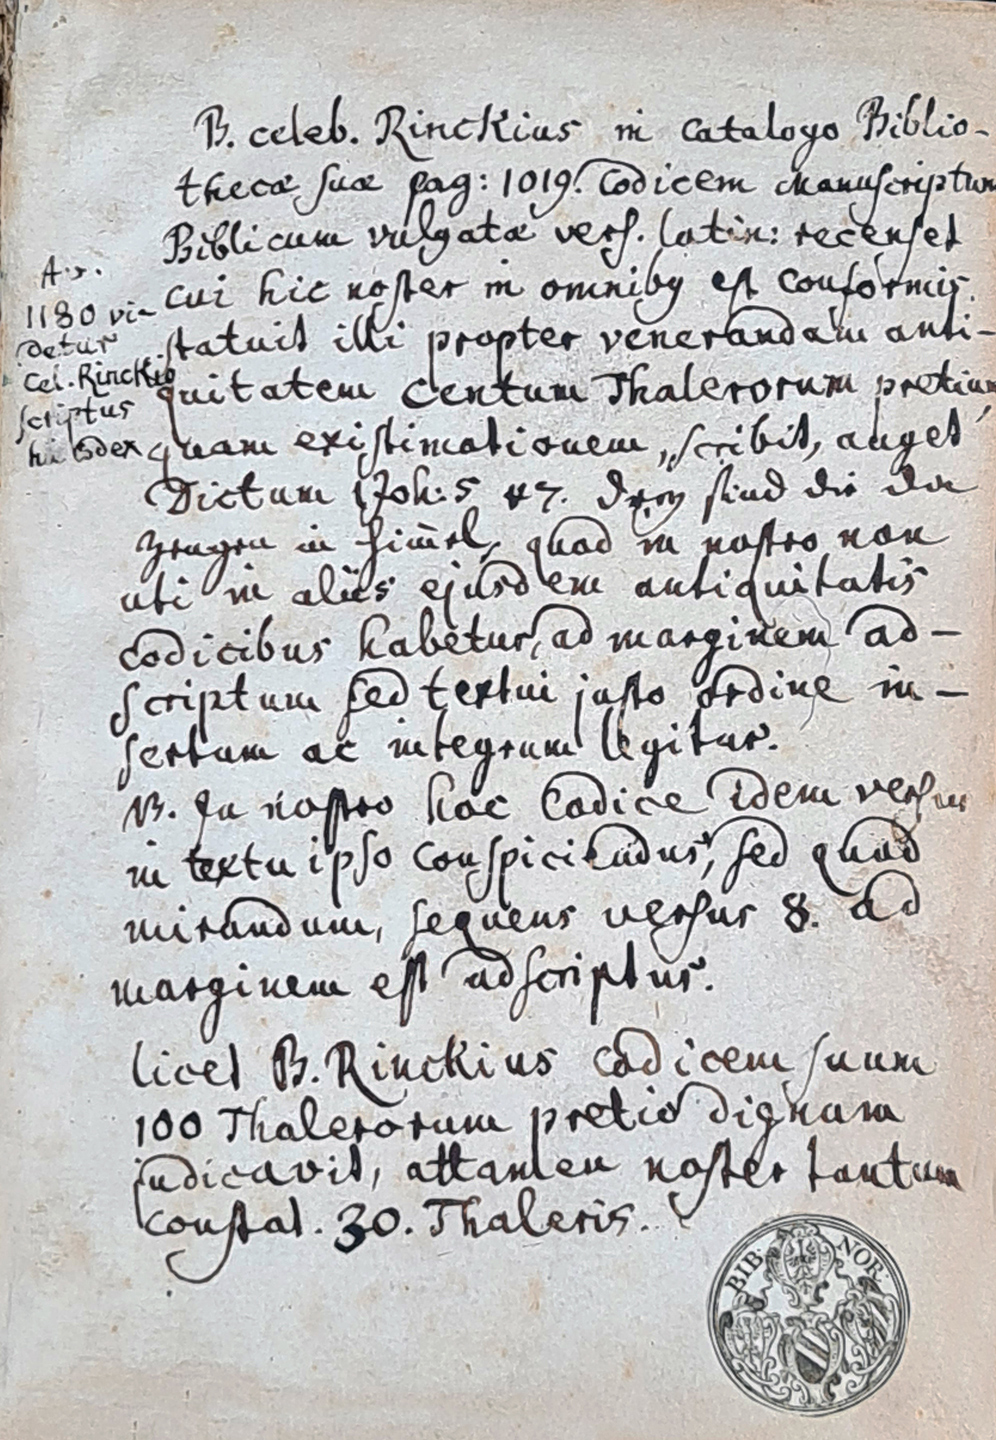 B. celeb. Rinckius in Catalogo Biblio-
thecæ suæ pag: 1019. Codicem Manuscriptum
Biblicum vulgatæ vers. latin: recenset
cui hic noster in omnibq est conformis.
statuit illi propter venerandam anti-
quitatem Centum Thalerorum pretium
quam existimationem, „scribit, auget
Dictum 1 Joh: 5 v 7. Drey sind die da
zeugen im Him̄el, quod in nostro non
uti in aliis ejusdem antiquitatis
codicibus habetur, ad marginem ad-
scriptum sed textui justo ordine in-
sertum ac integrum legitur.
NB. In nostro hoc Codice idem versus
in textu ipso conspiciendus, sed quod
mirandum, sequens versus 8. ad
marginem est adscriptus.
licet B. Rinckius codicem suum
100 Thalerorum pretio dignum
judicavit, attamen noster tantum
constat. 30. Thaleris.
1180 vi-
detur
Cel. Rinckio
scriptus
hic Codex
BIB. NOR.